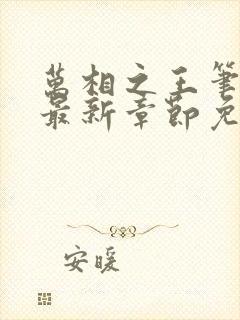 萬相之王筆
最新章節免
安暖